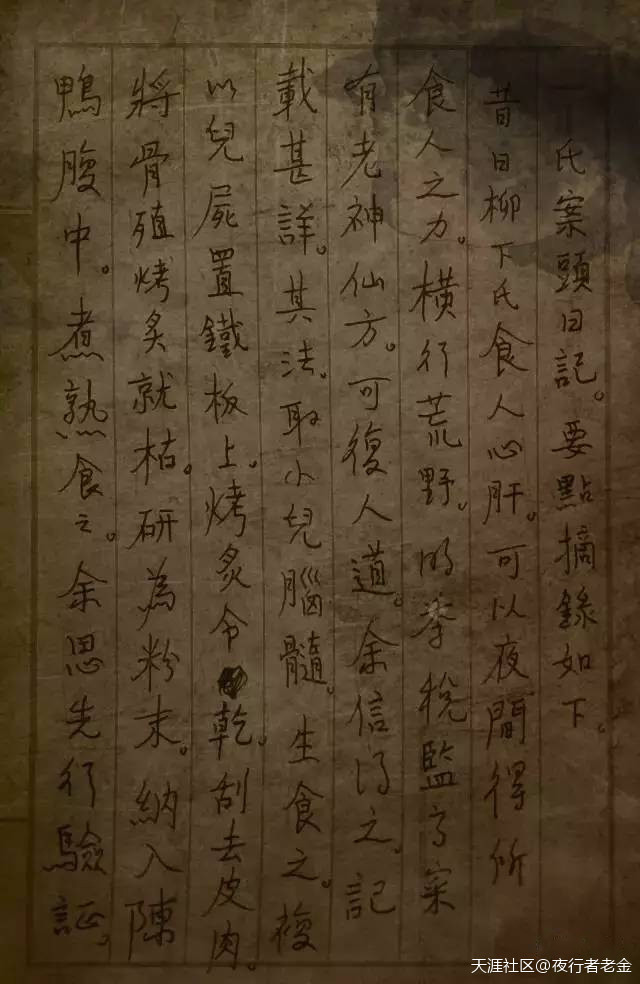 氏案頭日記。要點摘錄如下。
昔日柳下氏食人心肝。可以夜間得所
食人之力。橫行荒野。明季稅監高寀
有老神仙方。可復人道。余信得之。記
載甚詳。其法。取小兒腦髓。生食之。複
以兒屍置鐵板上。烤炙令乾。刮去皮肉。
將骨殖烤炙就枯。研為粉末。納入陳
鴨腹中。煮熟食之。余思先行驗証。
天涯社区@夜行者老金